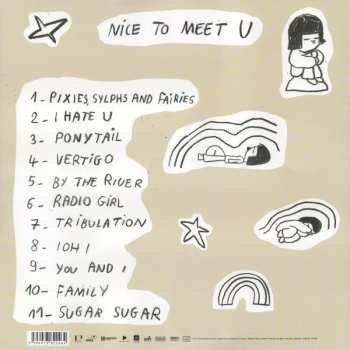 NICE TO MEET U
1- PIXIES, SYLPHS AND FAIRIES
2- I HATE U
3- PONYTAIL
4- VERTIGO
5- BY THE RIVER
6- RADIO GIRL
7- TRIBULATION
8- IOHI
9- YOU AND I
10- FAMILY
11- SUGAR SUGAR